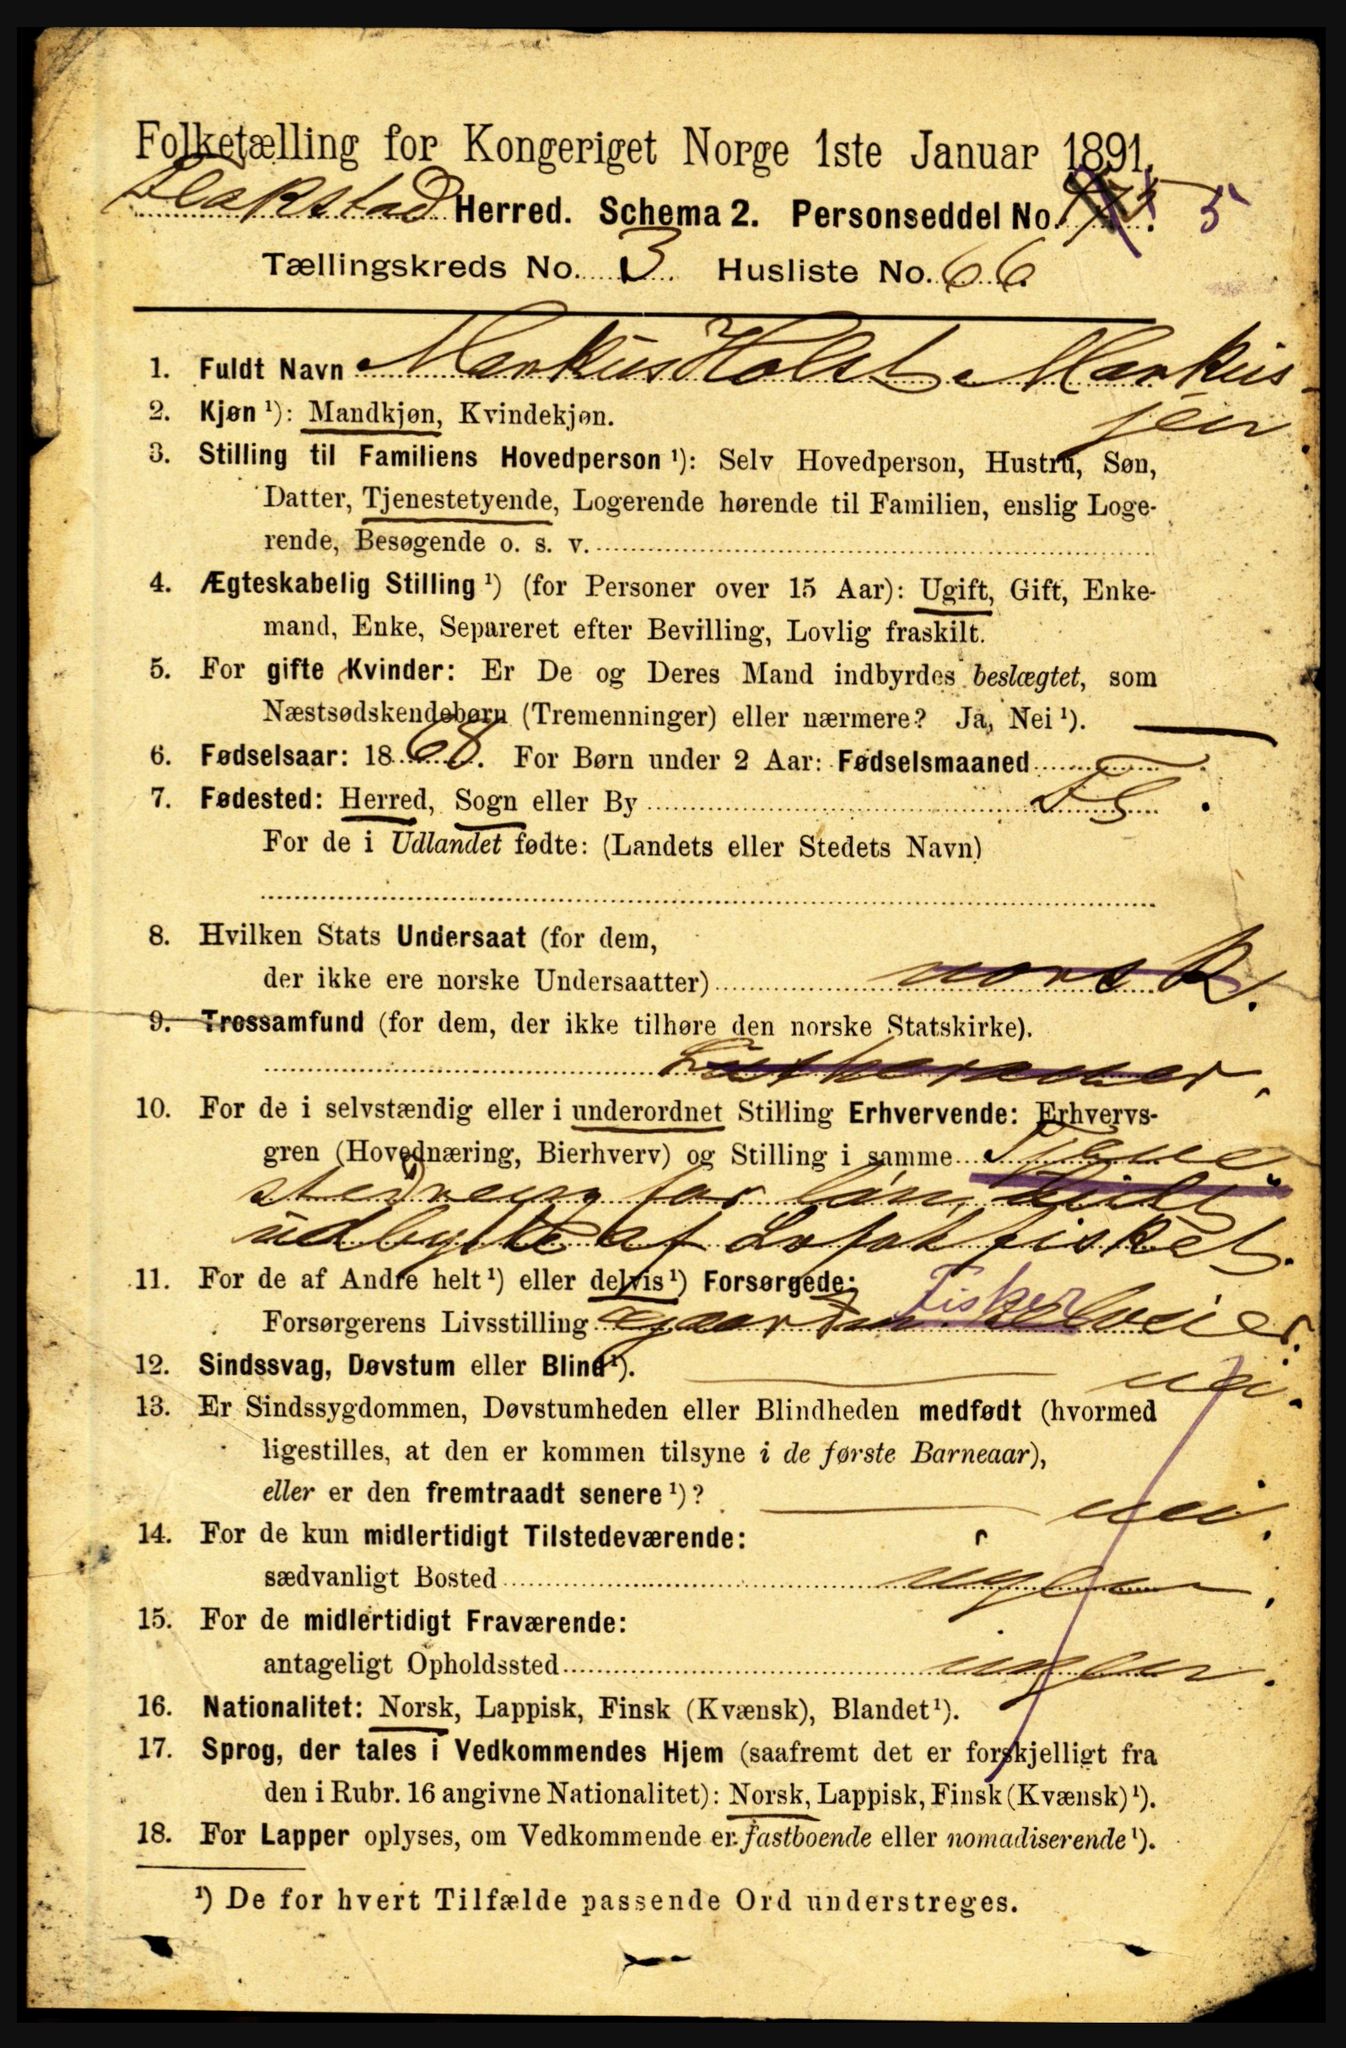 Folketælling for Kongeriget Norge 1ste Januar 1891.
Flakstad Herred. Schema 2. Personseddel No. 5
Tællingskreds No. 3 Husliste No. 66
1. Fuldt Navn Markus Holst Markus-
sen.
2. Kjøn ¹): Mandkjøn, Kvindekjøn.
3. Stilling til Familiens Hovedperson ¹): Selv Hovedperson, Hustru, Søn,
Datter, Tjenestetyende, Logerende hørende til Familien, enslig Loge-
rende, Besøgende o. s. v.
4. Ægteskabelig Stilling ¹) (for Personer over 15 Aar): Ugift, Gift, Enke-
mand, Enke, Separeret efter Bevilling, Lovlig fraskilt.
5. For gifte Kvinder: Er De og Deres Mand indbyrdes beslægtet, som
Næstsødskendebørn (Tremenninger) eller nærmere? Ja, Nei ¹).
6. Fødselsaar: 1868. For Børn under 2 Aar: Fødselsmaaned
7. Fødested: Herred, Sogn eller By Fl.
For de i Udlandet fødte: (Landets eller Stedets Navn)
8. Hvilken Stats Undersaat (for dem,
der ikke ere norske Undersaatter) norsk.
9. Trossamfund (for dem, der ikke tilhøre den norske Statskirke).
Lutheraner.
10. For de i selvstændig eller i underordnet Stilling Erhvervende: Erhvervs-
gren (Hovednæring, Bierhverv) og Stilling i samme Tjene
stedreng for løn,
udbytte af Lofotfisket.
11. For de af Andre helt ¹) eller delvis ¹) Forsørgede:
Forsørgerens Livsstilling gaardm Fisker selveier.
12. Sindssvag, Døvstum eller Blind ¹). nei.
13. Er Sindssygdommen, Døvstumheden eller Blindheden medfødt (hvormed
ligestilles, at den er kommen tilsyne i de første Barneaar),
eller er den fremtraadt senere ¹)? nei.
14. For de kun midlertidigt Tilstedeværende:
sædvanligt Bosted ingen.
15. For de midlertidigt Fraværende:
antageligt Opholdssted ingen.
16. Nationalitet: Norsk, Lappisk, Finsk (Kvænsk), Blandet ¹).
17. Sprog, der tales i Vedkommendes Hjem (saafremt det er forskjelligt fra
den i Rubr. 16 angivne Nationalitet): Norsk, Lappisk, Finsk (Kvænsk) ¹).
18. For Lapper oplyses, om Vedkommende er fastboende eller nomadiserende ¹).
¹) De for hvert Tilfælde passende Ord understreges.